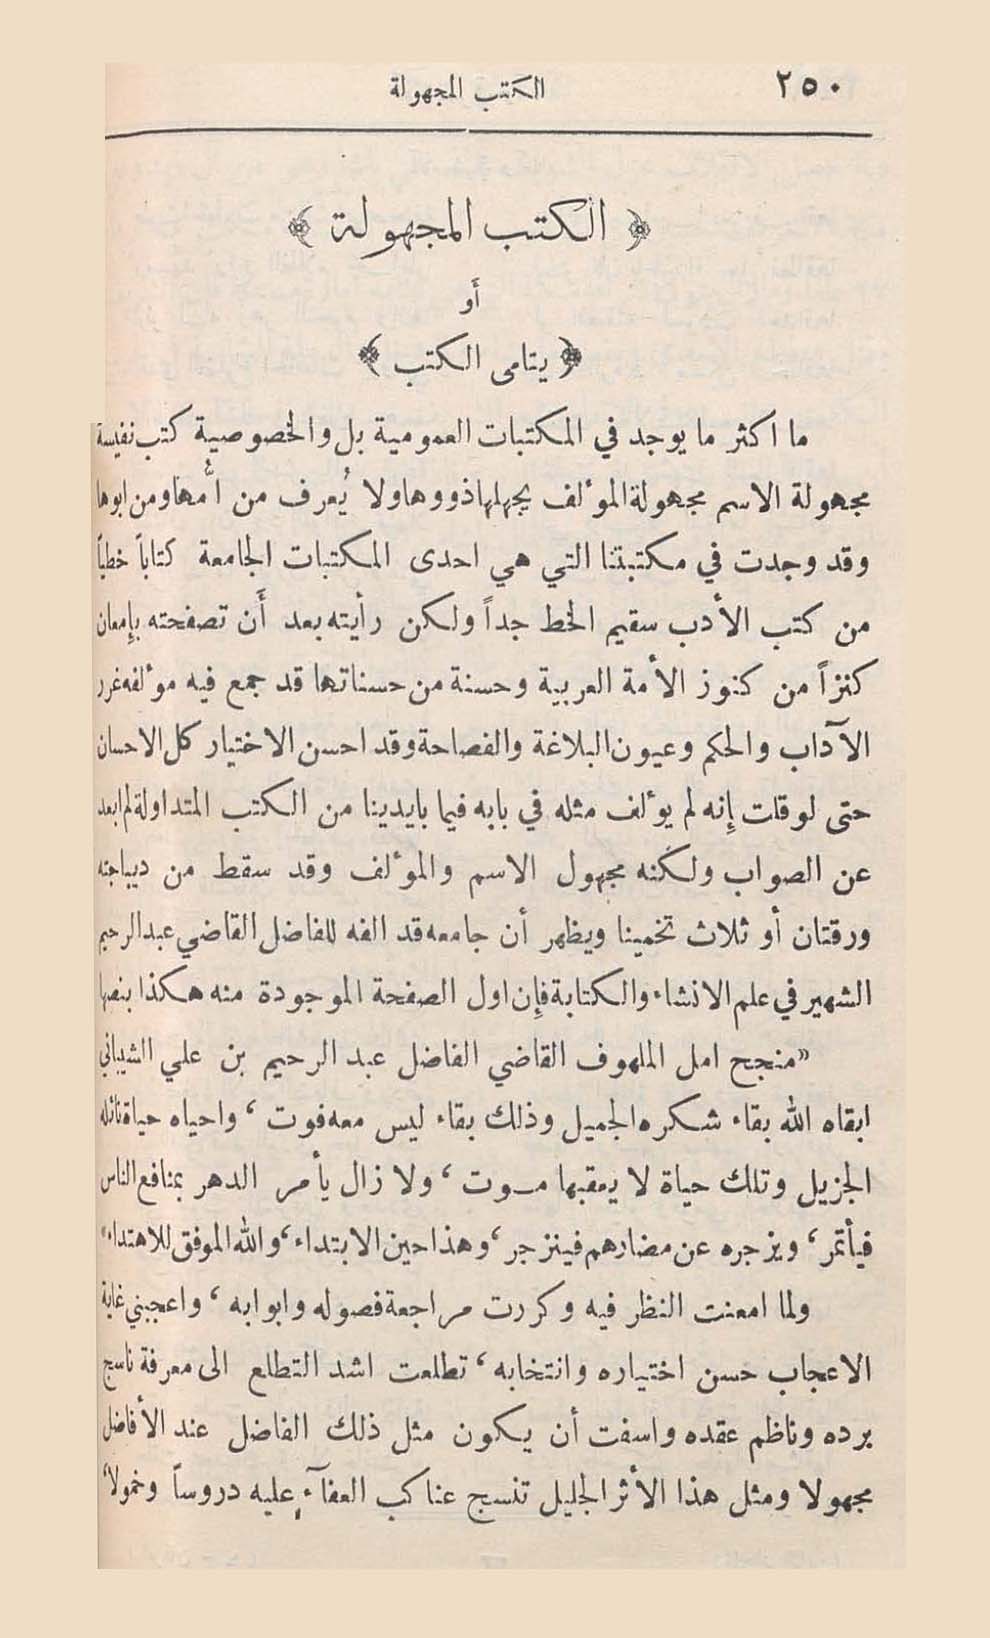 ٢٥٠ الكتب المجهولة
﴿ الكتب المجهولة ﴾
أو
﴿ يتامى الكتب ﴾
ما اكثر ما يوجد في المكتبات العمومية بل والخصوصية كتب نفيسة
مجهولة الاسم مجهولة المؤلف يجهلها ذووها ولا يُعرف من اُمها ومن ابوها
وقد وجدت في مكتبتنا التي هي احدى المكتبات الجامعة كتاباً خطياً
من كتب الأدب سقيم الخط جداً ولكن رأيته بعد أَن تصفحته بإِمعان
كنزاً من كنوز الأمة العربية وحسنة من حسناتها قد جمع فيه مؤلفه غرر
الآداب والحكم وعيون البلاغة والفصاحة وقد احسن الاختيار كل الاحسان
حتى لو قلت إِنه لم يؤلف مثله في بابه فيما بايدينا من الكتب المتداولة لم ابعد
عن الصواب ولكنه مجهول الاسم والمؤلف وقد سقط من ديباجته
ورقتان أو ثلاث تخمينا ويظهر أن جامعه قد الفه للفاضل القاضي عبد الرحيم
الشهير في علم الانشاء والكتابة فإِن اول الصفحة الموجودة منه هكذا بنصها
«منجح امل الملهوف القاضي الفاضل عبد الرحيم بن علي الشيباني
ابقاه الله بقاء شكره الجميل وذلك بقاء ليس معه فوت ، واحياه حياة نائله
الجزيل وتلك حياة لا يعقبها مـوت ، ولا زال يأمر الدهر بمنافع الناس
فيأتمر ، ويزجره عن مضارهم فينزجر ، وهذا حين الابتداء ، والله الموفق للاهتداء»
ولما امعنت النظر فيه وكررت مراجعة فصوله وابوابه ، واعجبني غاية
الاعجاب حسن اختياره وانتخابه ، تطلعت اشد التطلع الى معرفة ناسج
برده وناظم عقده واسفت أن يكون مثل ذلك الفاضل عند الأفاضل
مجهولا ومثل هذا الأثر الجليل تنسج عناكب العفآء عليه دروساً وخمولا ،